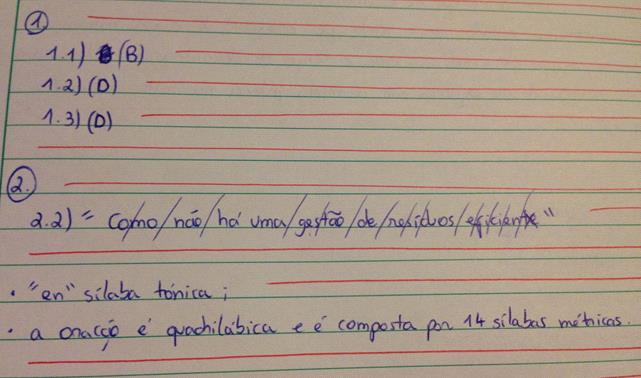 1
1.1) (B)
1.2) (D)
1.3) (D)
2.
2.2) = Co/mo/não/há uma/ges/tão/de/re/sí/duos/e/fi/cien/te"
• "en" sílaba tónica;
• a oracção é quadrilábica e é composta por 14 sílabas métricas.